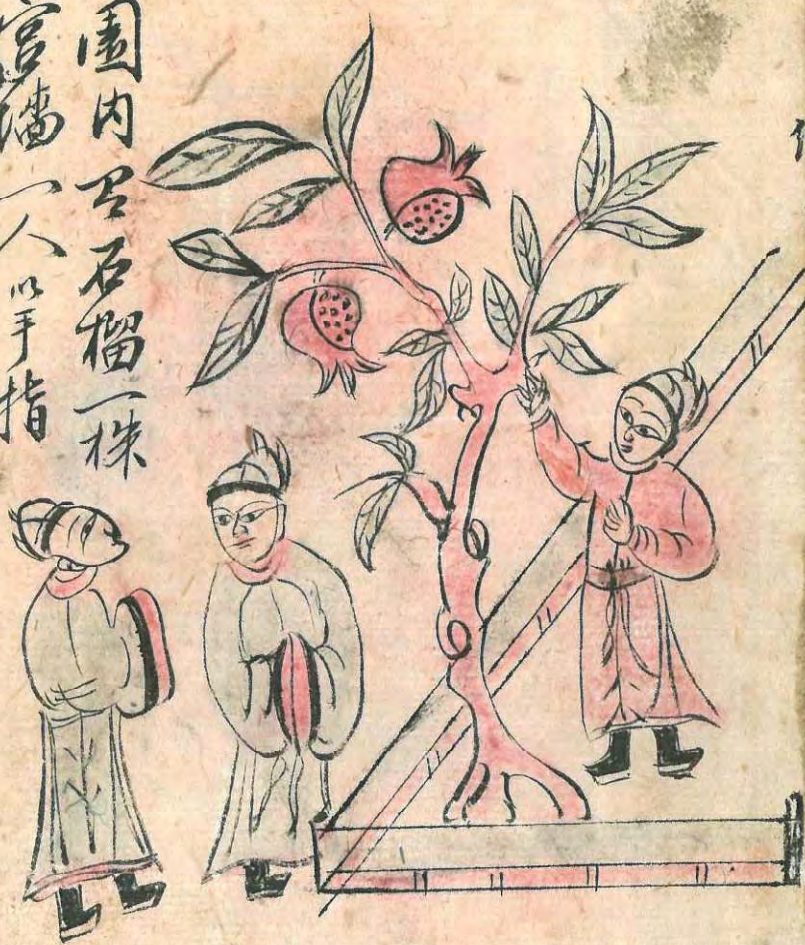 園内石榴一株
宮墻一人以手指